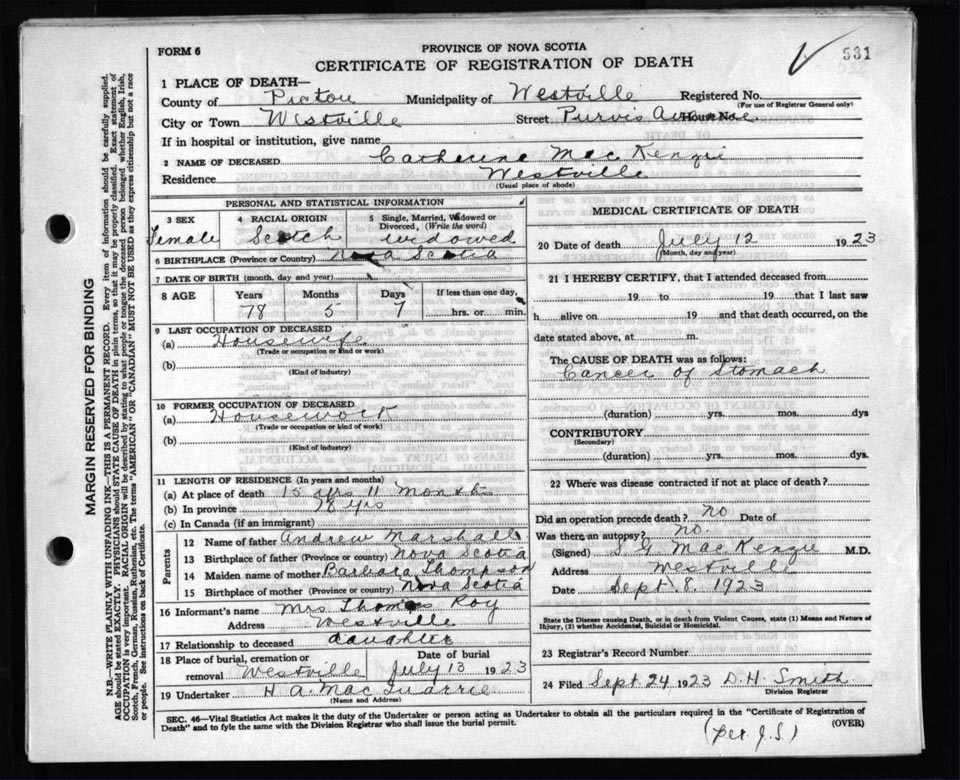 FORM 6
PROVINCE OF NOVA SCOTIA
CERTIFICATE OF REGISTRATION OF DEATH
531
1 PLACE OF DEATH—
County of Pictou Municipality of Westville Registered No.
(For use of Registrar General only)
City or Town Westville Street Purvis Avenue House No.
If in hospital or institution, give name
2 NAME OF DECEASED Catherine MacKenzie
Residence Westville
(Usual place of abode)
PERSONAL AND STATISTICAL INFORMATION
3 SEX Female
4 RACIAL ORIGIN Scotch
5 Single, Married, Widowed or Divorced, (Write the word) widowed
6 BIRTHPLACE (Province or Country) Nova Scotia
7 DATE OF BIRTH (month, day and year)
8 AGE Years Months Days If less than one day,
78 5 7 hrs. or min.
9 LAST OCCUPATION OF DECEASED
(a) Housewife
(Trade or occupation or kind or work)
(b)
(Kind of industry)
10 FORMER OCCUPATION OF DECEASED
(a) Housework
(Trade or occupation or kind of work)
(b)
(Kind of industry)
11 LENGTH OF RESIDENCE (In years and months)
(a) At place of death 15 yrs 11 months
(b) In province 78 yrs
(c) In Canada (if an immigrant)
Parents
12 Name of father Andrew Marshall
13 Birthplace of father (Province or country) Nova Scotia
14 Maiden name of mother Barbara Thompson
15 Birthplace of mother (Province or country) Nova Scotia
16 Informant's name Mrs Thomas Roy
Address Westville
17 Relationship to deceased daughter
18 Place of burial, cremation or removal Westville Date of burial July 13 1923
19 Undertaker H. A. MacQuarrie
(Name and Address)
MEDICAL CERTIFICATE OF DEATH
20 Date of death July 12 1923
(Month, day and year)
21 I HEREBY CERTIFY, that I attended deceased from
19 to 19 that I last saw
h alive on 19 and that death occurred, on the
date stated above, at m.
The CAUSE OF DEATH was as follows:
Cancer of Stomach
(duration) yrs. mos. dys
CONTRIBUTORY
(Secondary)
(duration) yrs. mos. dys.
22 Where was disease contracted if not at place of death?
Did an operation precede death? no Date of
Was there an autopsy? no.
(Signed) S G MacKenzie M.D.
Address Westville
Date Sept. 8. 1923
State the Disease causing Death, or in death from Violent Causes, state (1) Means and Nature of
Injury, (2) whether Accidental, Suicidal or Homicidal.
23 Registrar's Record Number
24 Filed Sept. 24 1923 D. H. Smith
Division Registrar
SEC. 46—Vital Statistics Act makes it the duty of the Undertaker or person acting as Undertaker to obtain all the particulars required in the "Certificate of Registration of
Death" and to fyle the same with the Division Registrar who shall issue the burial permit. (OVER)
(per J.S.)
MARGIN RESERVED FOR BINDING
N.B.—WRITE PLAINLY WITH UNFADING INK—THIS IS A PERMANENT RECORD. Every item of information should be carefully supplied.
AGE should be stated EXACTLY. PHYSICIANS should STATE CAUSE OF DEATH in plain terms, so that it may be properly classified. Exact statement of
OCCUPATION is very important. RACIAL ORIGIN will be described by stating to what people or tongue the deceased person belonged whether English, Irish,
Scotch, French, German, Russian, Ruthenian, etc. The terms "AMERICAN" OR "CANADIAN" MUST NOT BE USED as they express citizenship but not a race
or people. See instructions on back of Certificate.